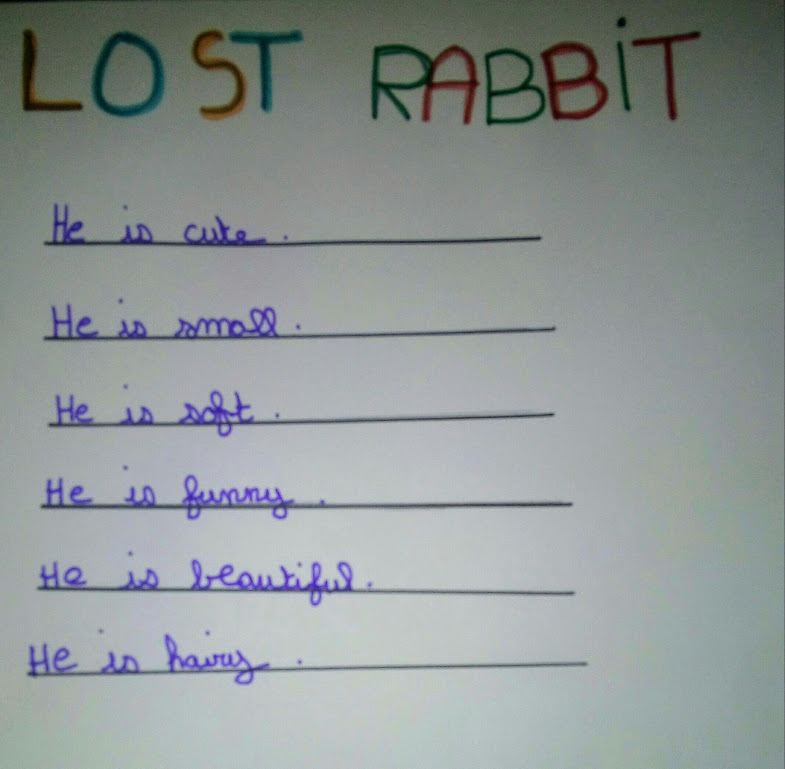 LOST RABBiT
He is cute.
He is small.
He is soft.
He is funny.
He is beautiful.
He is hairy.